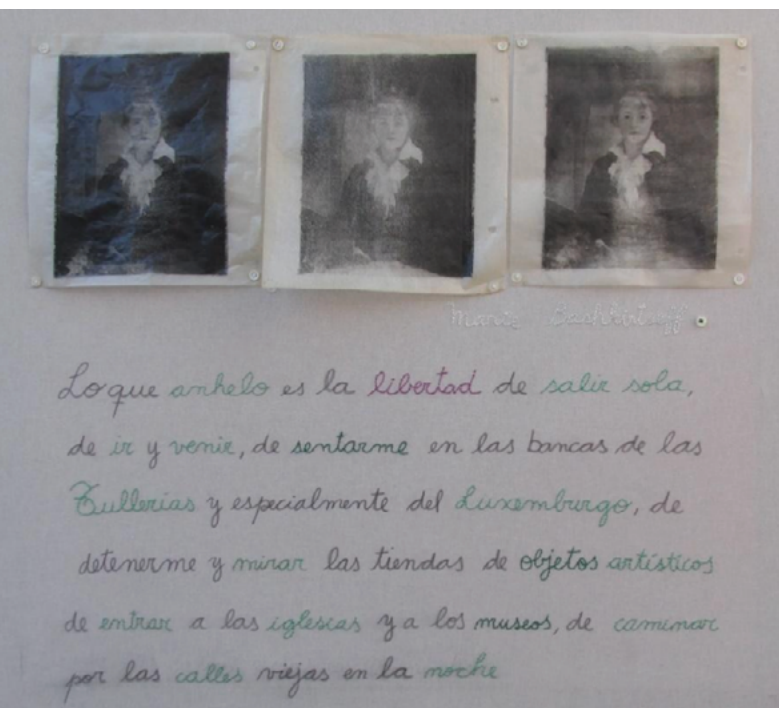 Marie Bashkirtseff
Lo que anhelo es la libertad de salir sola,
de ir y venir, de sentarme en las bancas de las
Tullerías y especialmente del Luxemburgo, de
detenerme y mirar las tiendas de objetos artísticos
de entrar a las iglesias y a los museos, de caminar
por las calles viejas en la noche